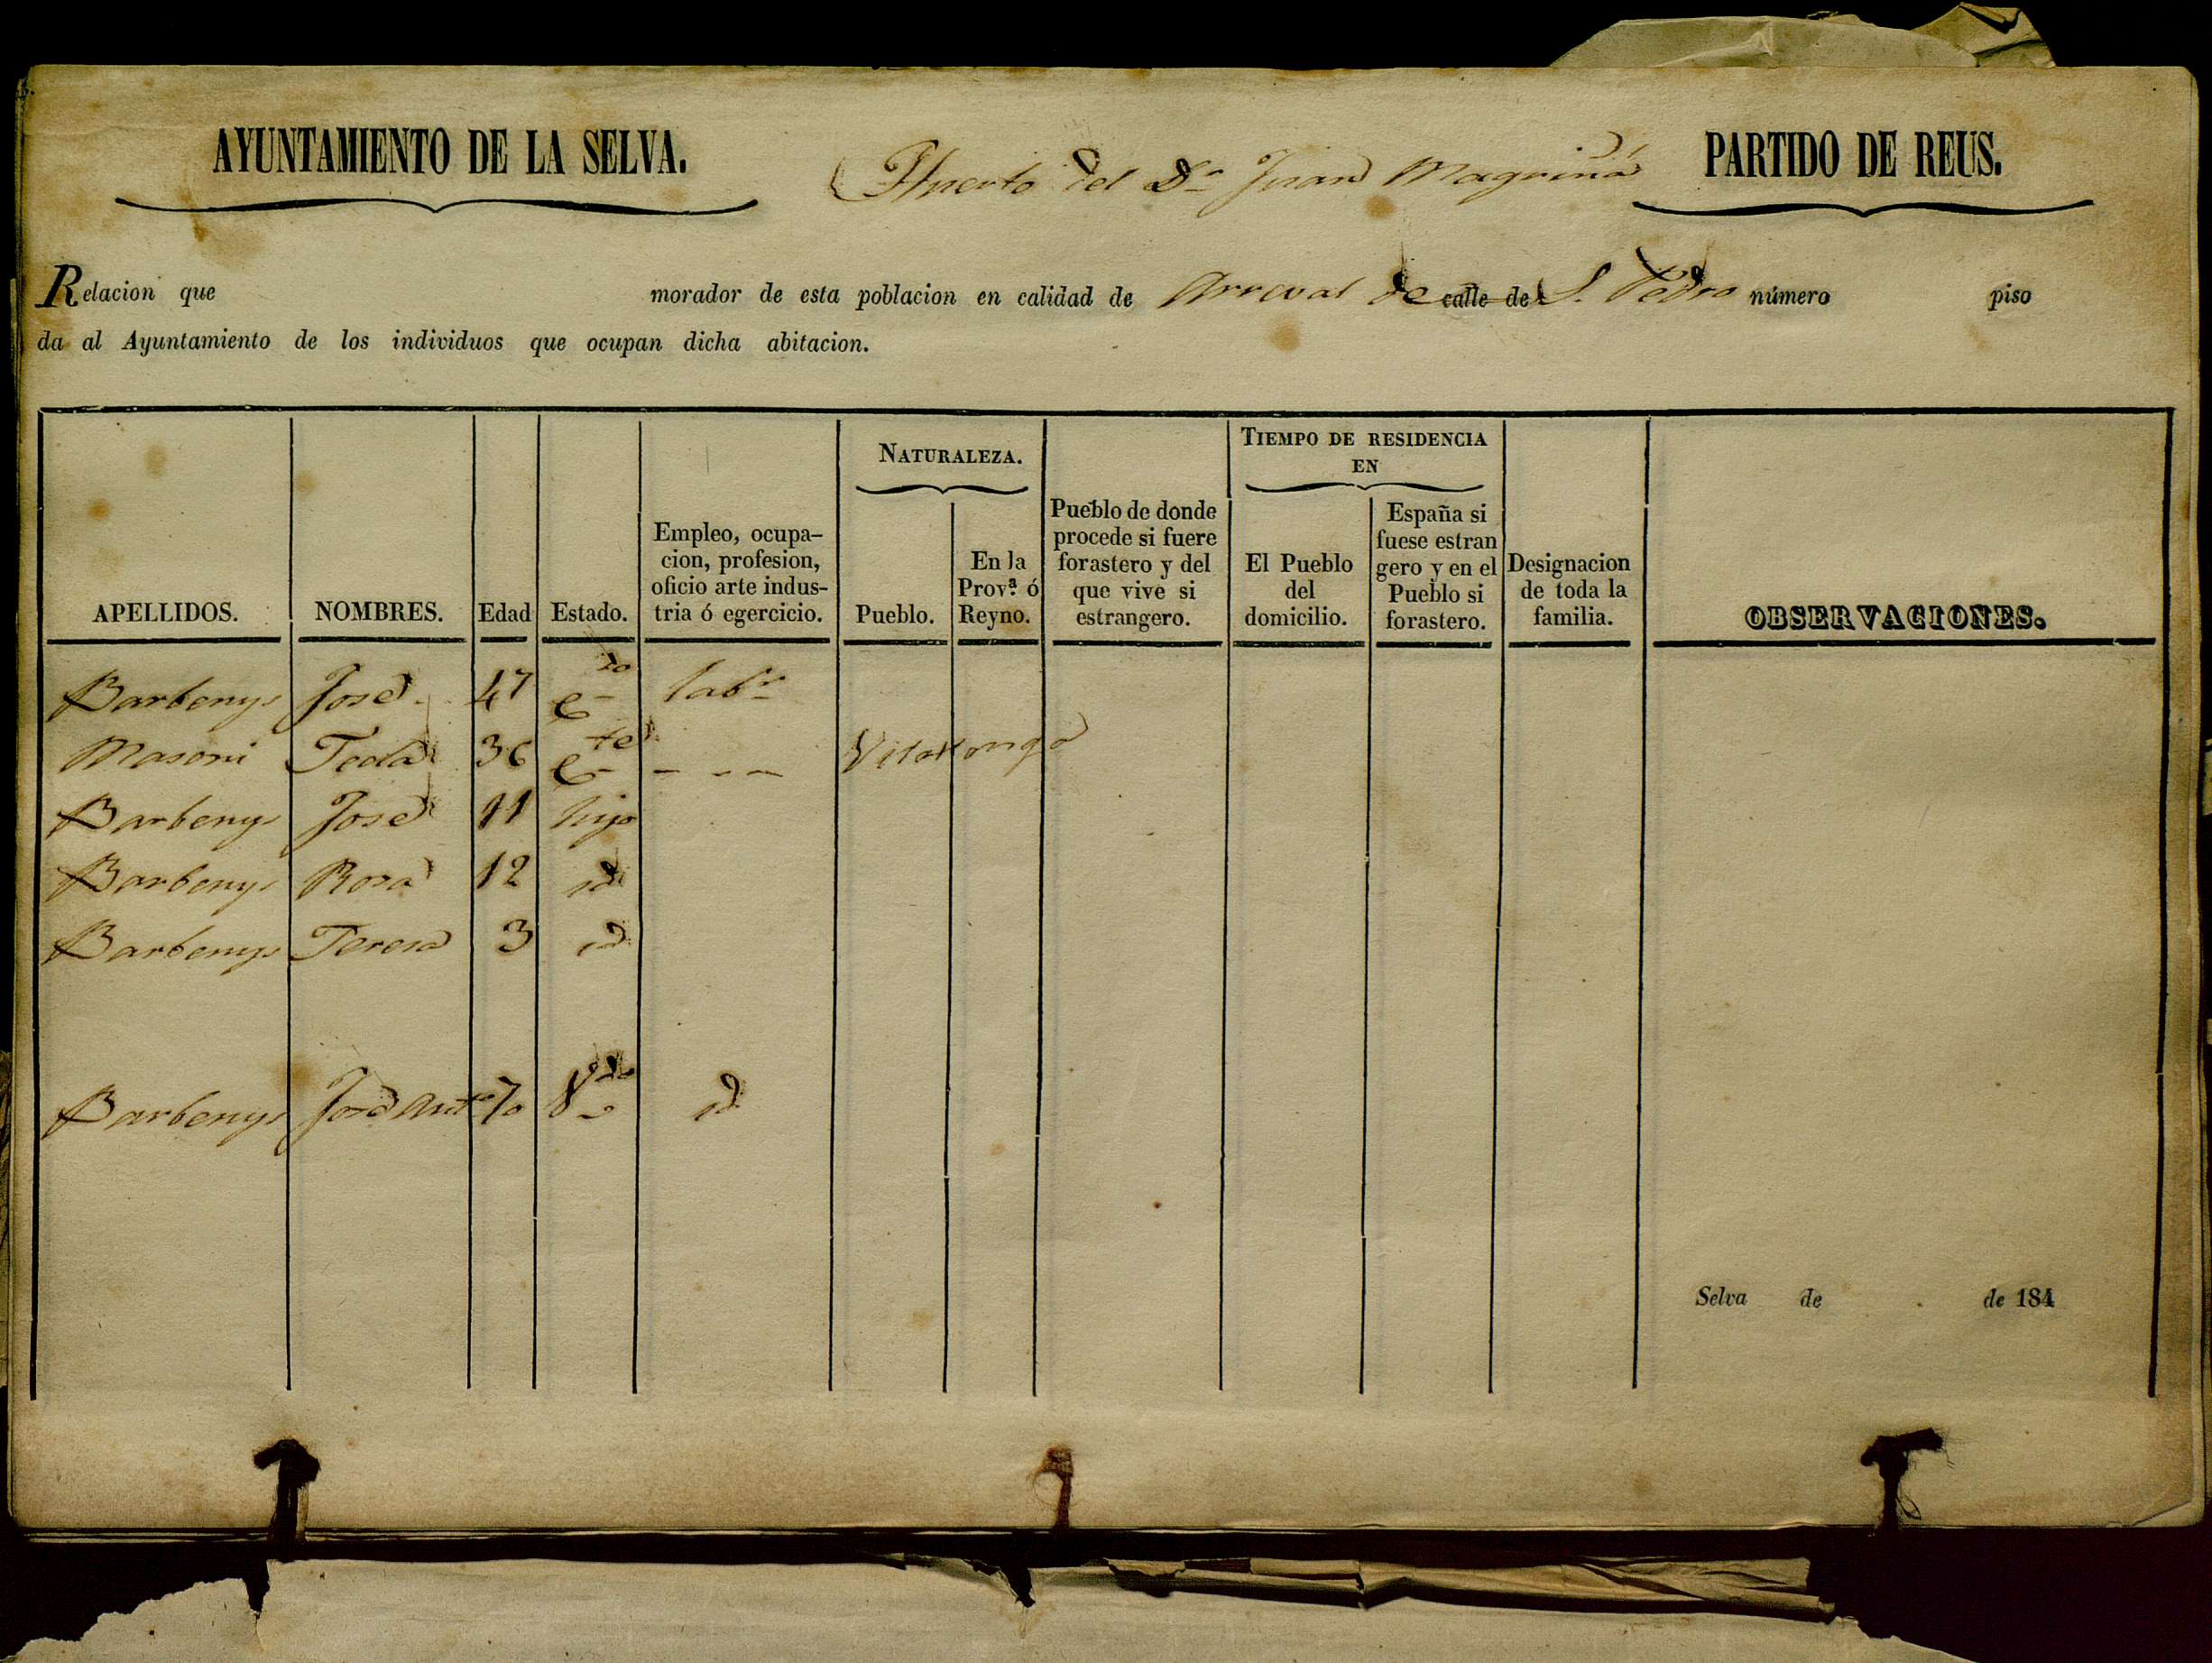 AYUNTAMIENTO DE LA SELVA.
Huerto del Sr Juan Magriñá
PARTIDO DE REUS.
Relacion que morador de esta poblacion en calidad de Arreval de calle de S. Pedro número piso
da al Ayuntamiento de los individuos que ocupan dicha abitacion.
APELLIDOS.
NOMBRES.
Edad
Estado.
Empleo, ocupa-
cion, profesion,
oficio arte indus-
tria ó egercicio.
NATURALEZA.
Pueblo.
En la
Prov.ª ó
Reyno.
Pueblo de donde
procede si fuere
forastero y del
que vive si
estrangero.
TIEMPO DE RESIDENCIA
EN
El Pueblo
del
domicilio.
España si
fuese estran
gero y en el
Pueblo si
forastero.
Designacion
de toda la
familia.
OBSERVACIONES.
Barbenys José 47 Cdo labr
Masoni Tecla 36 Cte - - - Vilallonga
Barbenys José 11 hijo
Barbenys Rosa 12 id
Barbenys Teresa 3 id
Barbenys José Anto 70 Vdo id
Selva de de 184